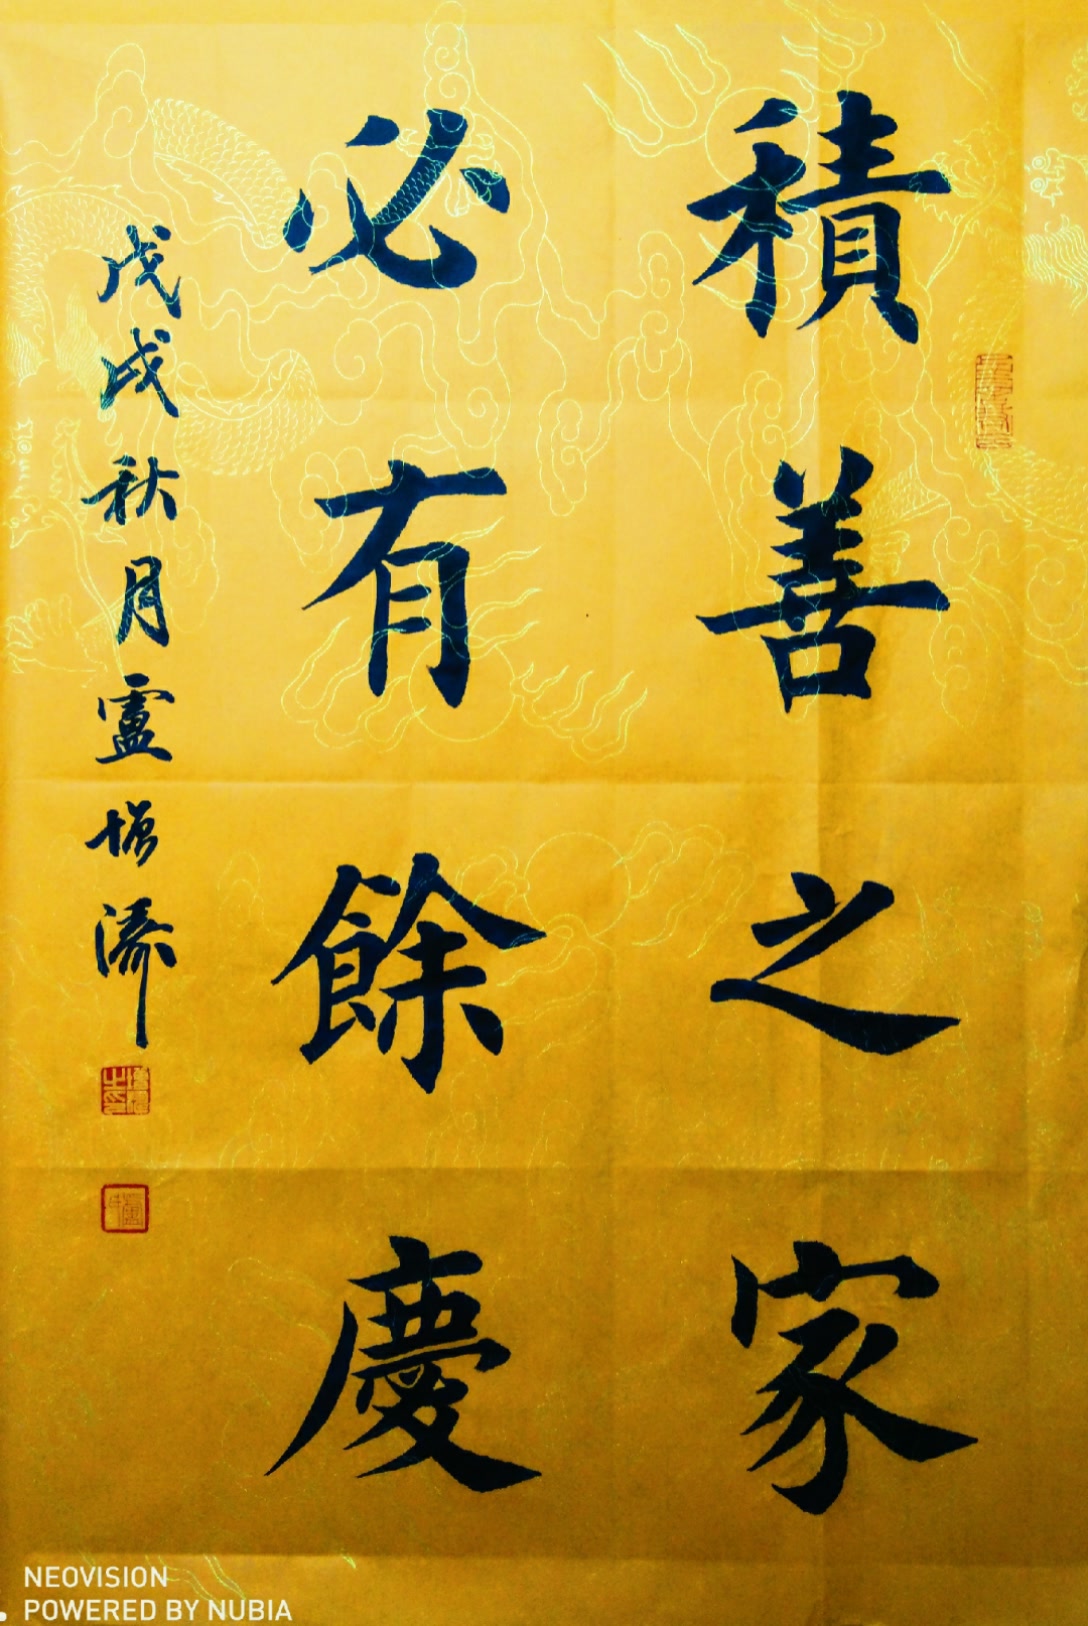 積善之家
必有餘慶
戊戌秋月盧增添
NEOVISION
POWERED BY NUBIA